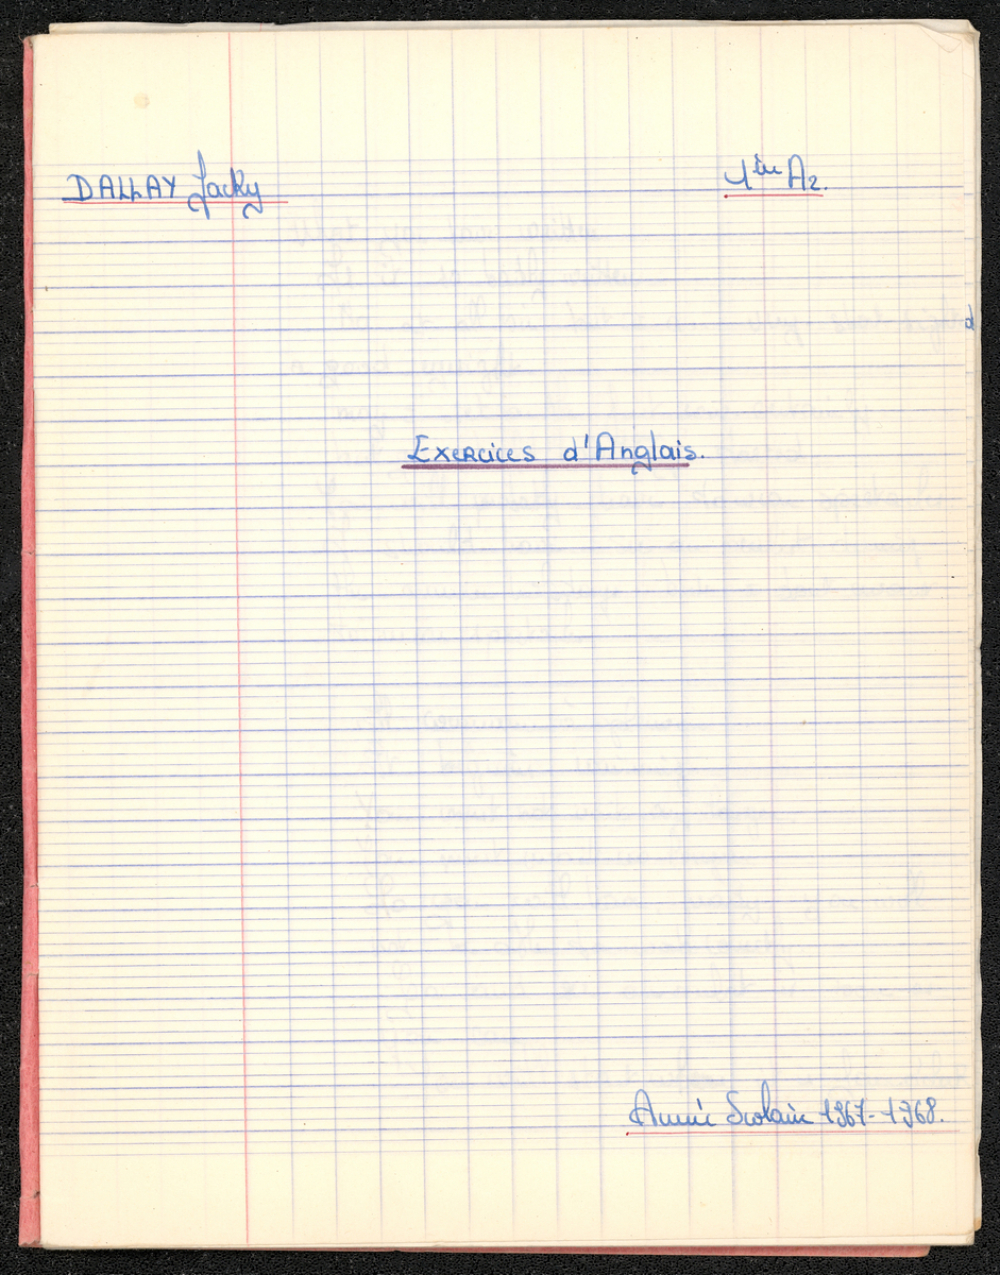 DALLAY Jacky
1ère A2.
Exercices d'Anglais.
Année Scolaire 1967-1968.